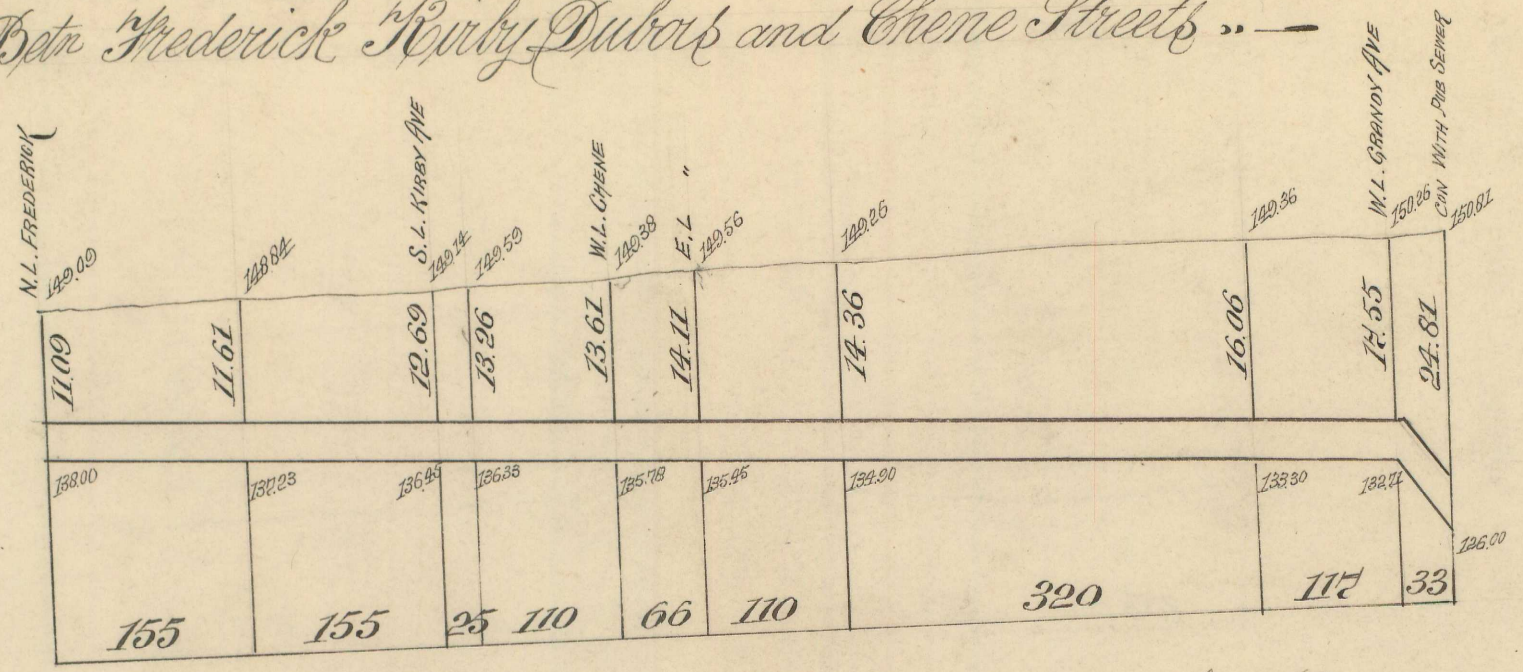 Betn Frederick Kirby Dubois and Chene Streets "—
N.L. FREDERICK
S.L. KIRBY AVE
W.L. CHENE
E.L "
W.L. GRANDY AVE
CON WITH PUB SEWER
149.09 148.84 149.14 149.59 149.38 149.56 149.26 149.36 150.26 150.81
11.09 11.61 12.69 13.26 13.61 14.11 14.36 16.06 17.55 24.81
138.00 137.23 136.45 136.33 135.78 135.45 134.90 133.30 132.71 126.00
155 155 25 110 66 110 320 117 33